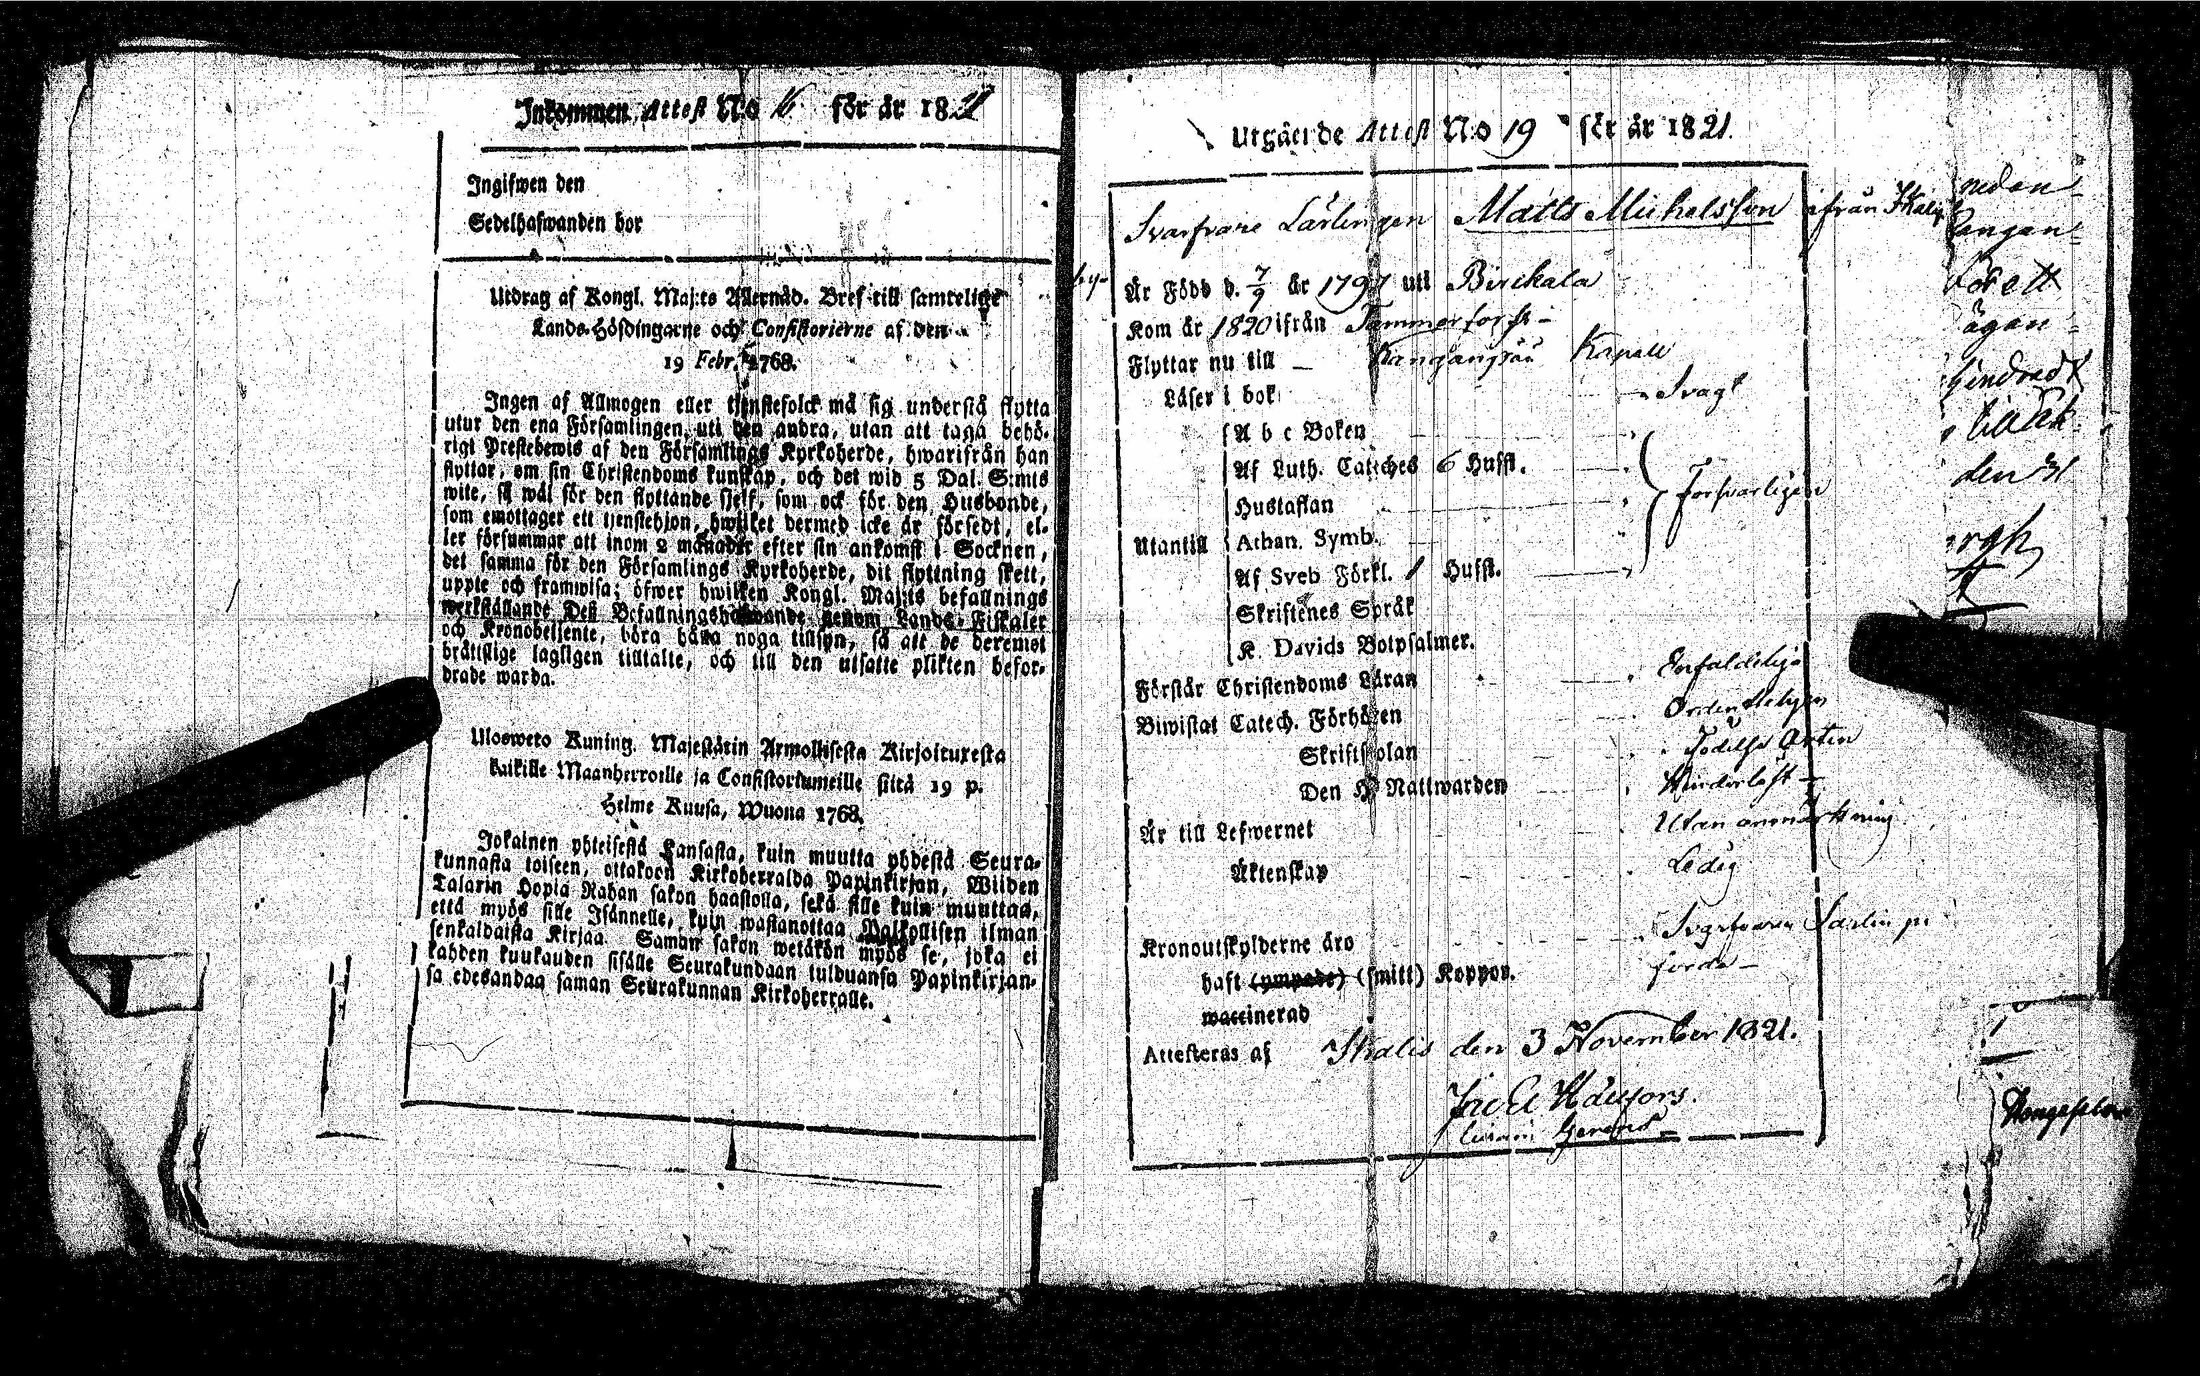 Inkommen Attest No 16. för år 1821
Ingifwen den
Sedelhafwanden bor
Utdrag af Kongl. Maj:ts Allernåd. Bref till samtelige
Lands-Höfdingarne och Consistorierne af den
19 Febr. 1768.
Ingen af Allmogen eller tjenstefolck må sig understå flytta
utur den ena Församlingen uti den andra, utan att taga behö-
rigt Prestebewis af den Församlings Kyrkoherde, hwarifrån han
flyttar, om sin Christendoms kunskap, och det wid 5 Dal. S:mts
wite, så wäl för den flyttande sjelf, som ock för den Husbonde,
som emottager ett tjenstehjon, hwilket dermed icke är försedt, el-
ler försummar att inom 2 månader efter sin ankomst i Socknen,
det samma för den Församlings Kyrkoherde, dit flyttning skett,
uppte och framwisa; öfwer hwilken Kongl. Maj:ts befallnings
werkställande Deß Befallningshafwande genom Lands-Fiskaler
och Kronobetjente, böra hålla noga tillsyn, så att de deremot
bråttslige lagligen tilltalte, och till den utsatte plikten befor-
drade warda.
Ulosweto Kuning. Majestätin Armollisesta Kirjoituxesta
kaikille Maanherroille ja Consistoriumeille siitä 19 p.
Helme Kuusa, Wuona 1768.
Jokainen yhteisestä Kansasta, kuin muutta yhdestä Seura-
kunnasta toiseen, ottakoon Kirkoherralda Papinkirjan, Wiiden
Talarin Hopia Rahan sakon haastolla, sekä sille kuin muuttaa,
että myös sille Isännelle, kuin wastanottaa Palkollisen ilman
senkaldaista Kirjaa. Saman sakon wetäkön myös se, joka ei
kahden kuukauden sisälle Seurakundaan tulduansa Papinkirjan-
sa edesandaa saman Seurakunnan Kirkoherralle.
Utgående Attest No 19 för år 1821.
Svarfvare Lärlingen Matts Michelsson ifrån Ikalis
by-
Är Född d. 7/9 år 1797 uti Birckala
Kom år 1820 ifrån Tammerforss-
Flyttar nu till Kapell
Läser i bok Svagt
A b c Boken
Af Luth. Catéches 6 Hufst.
Hustaflan Försvarligen
Utantill Athan. Symb.
Af Sveb Förkl. 1 Hufst.
Skriftenes Språk
K. Davids Botpsalmer.
Förstår Christendoms Läran Enfaldeligt
Biwistat Catech. Förhören Ordenteligen
Skriftskolan
Den H. Nattwarden Hinderlöst
Är till Lefwernet Utan anmärkning
Äktenskap Ledig
Kronoutskylderne äro Svarfvare Lärling
haft (ympade) (smitt) Koppor.
waccinerad
Attesteras af Ikalis den 3 November 1821.